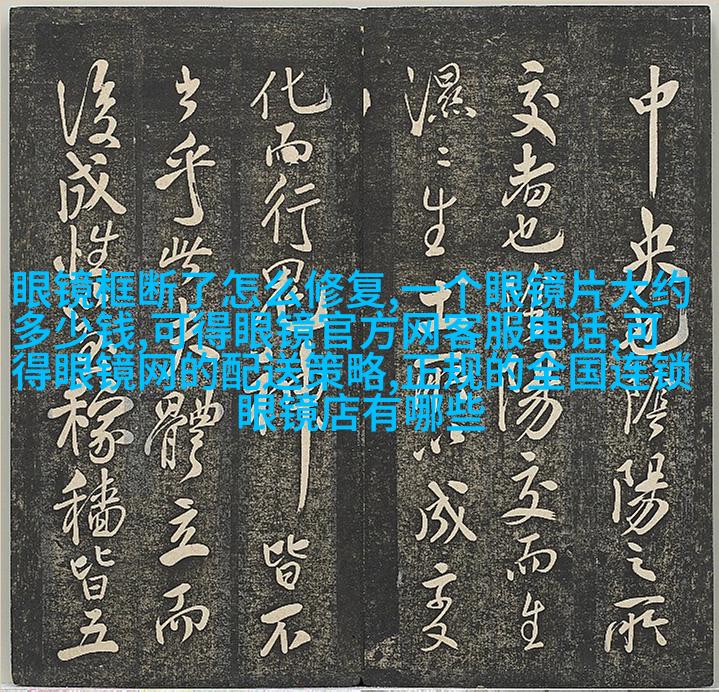 眼镜框断了怎么修复,一个眼镜片大约
多少钱,可得眼镜官方网客服电话,可
得眼镜网的配送策略,正规的全国连锁
眼镜店有哪些
中央也陰陽之所
交者也陽交而生
濕〻生土成变
化而行鬼神皆不
乎此大體立而
後成性稼穡皆五